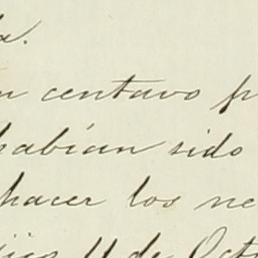 centavo
habían sido
hacer los
11 de Oct